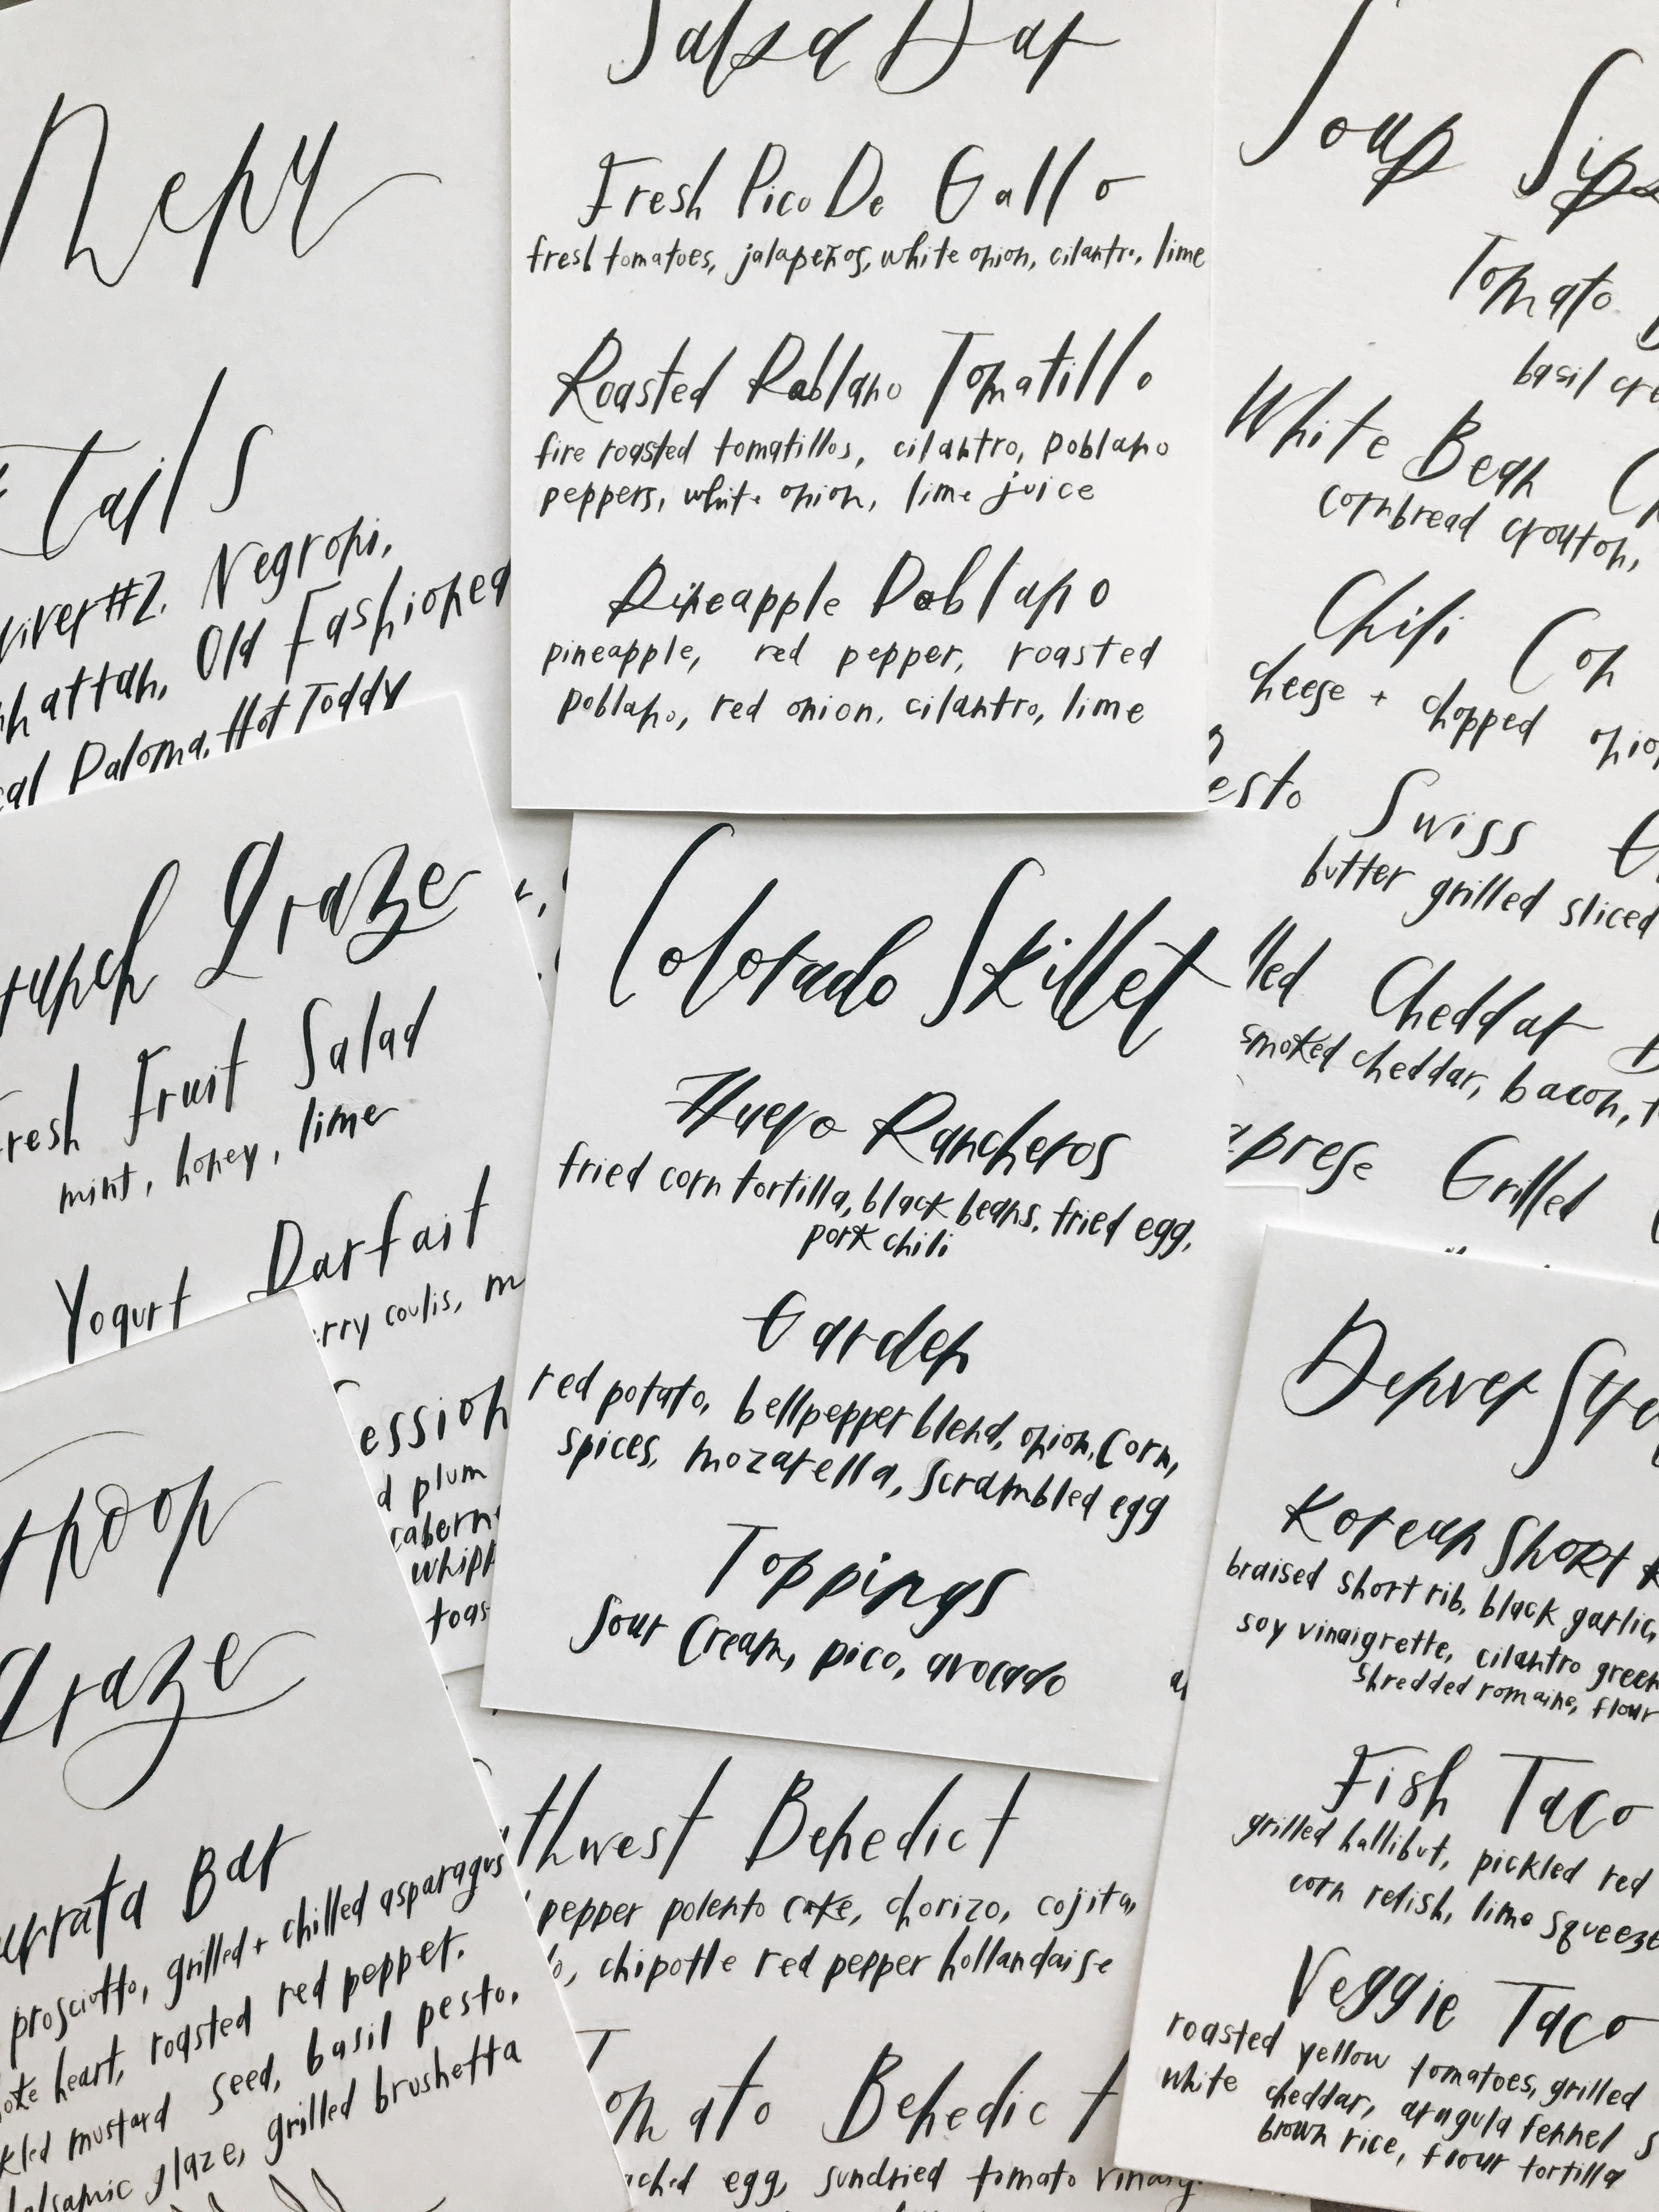 Salsa Bar
Fresh Pico De Gallo
fresh tomatoes, jalapeños, white onion, cilantro, lime
Roasted Poblano Tomatillo
fire roasted tomatillos, cilantro, poblano
peppers, white onion, lime juice
Pineapple Poblano
pineapple, red pepper, roasted
poblano, red onion, cilantro, lime
tails
#2, Negroni,
Old Fashioned
Paloma, Hot Toddy
Soup Sips
Tomato
basil
White Bean
cornbread crouton,
Chili Con
cheese + chopped
esto Swiss
butter grilled sliced
Cheddar
smoked cheddar, bacon,
aprese Grilled
runch Graze
resh Fruit Salad
mint, honey, lime
Yogurt Parfait
rry coulis,
ession
d plum
cabern
whipp
toas
Colorado Skillet
Huevo Rancheros
fried corn tortilla, black beans, fried egg,
pork chili
Garden
red potato, bellpepper blend, onion, corn,
spices, mozarella, scrambled egg
Toppings
Sour Cream, pico, avocado
Denver
Korean Short
braised short rib, black garlic,
soy vinaigrette, cilantro green
shredded romaine, flour
Fish Taco
grilled hallibut, pickled red
corn relish, lime squeeze
Veggie Taco
roasted yellow tomatoes, grilled
white cheddar, arugula fennel s
brown rice, flour tortilla
rnoon
Graze
Bar
prosciutto, grilled + chilled asparagus
heart, roasted red pepper,
mustard seed, basil pesto,
balsamic glaze, grilled brushetta
thwest Benedict
pepper polento cake, chorizo, cojita,
o, chipotle red pepper hollandaise
Tomato Benedict
ached egg, sundried tomato